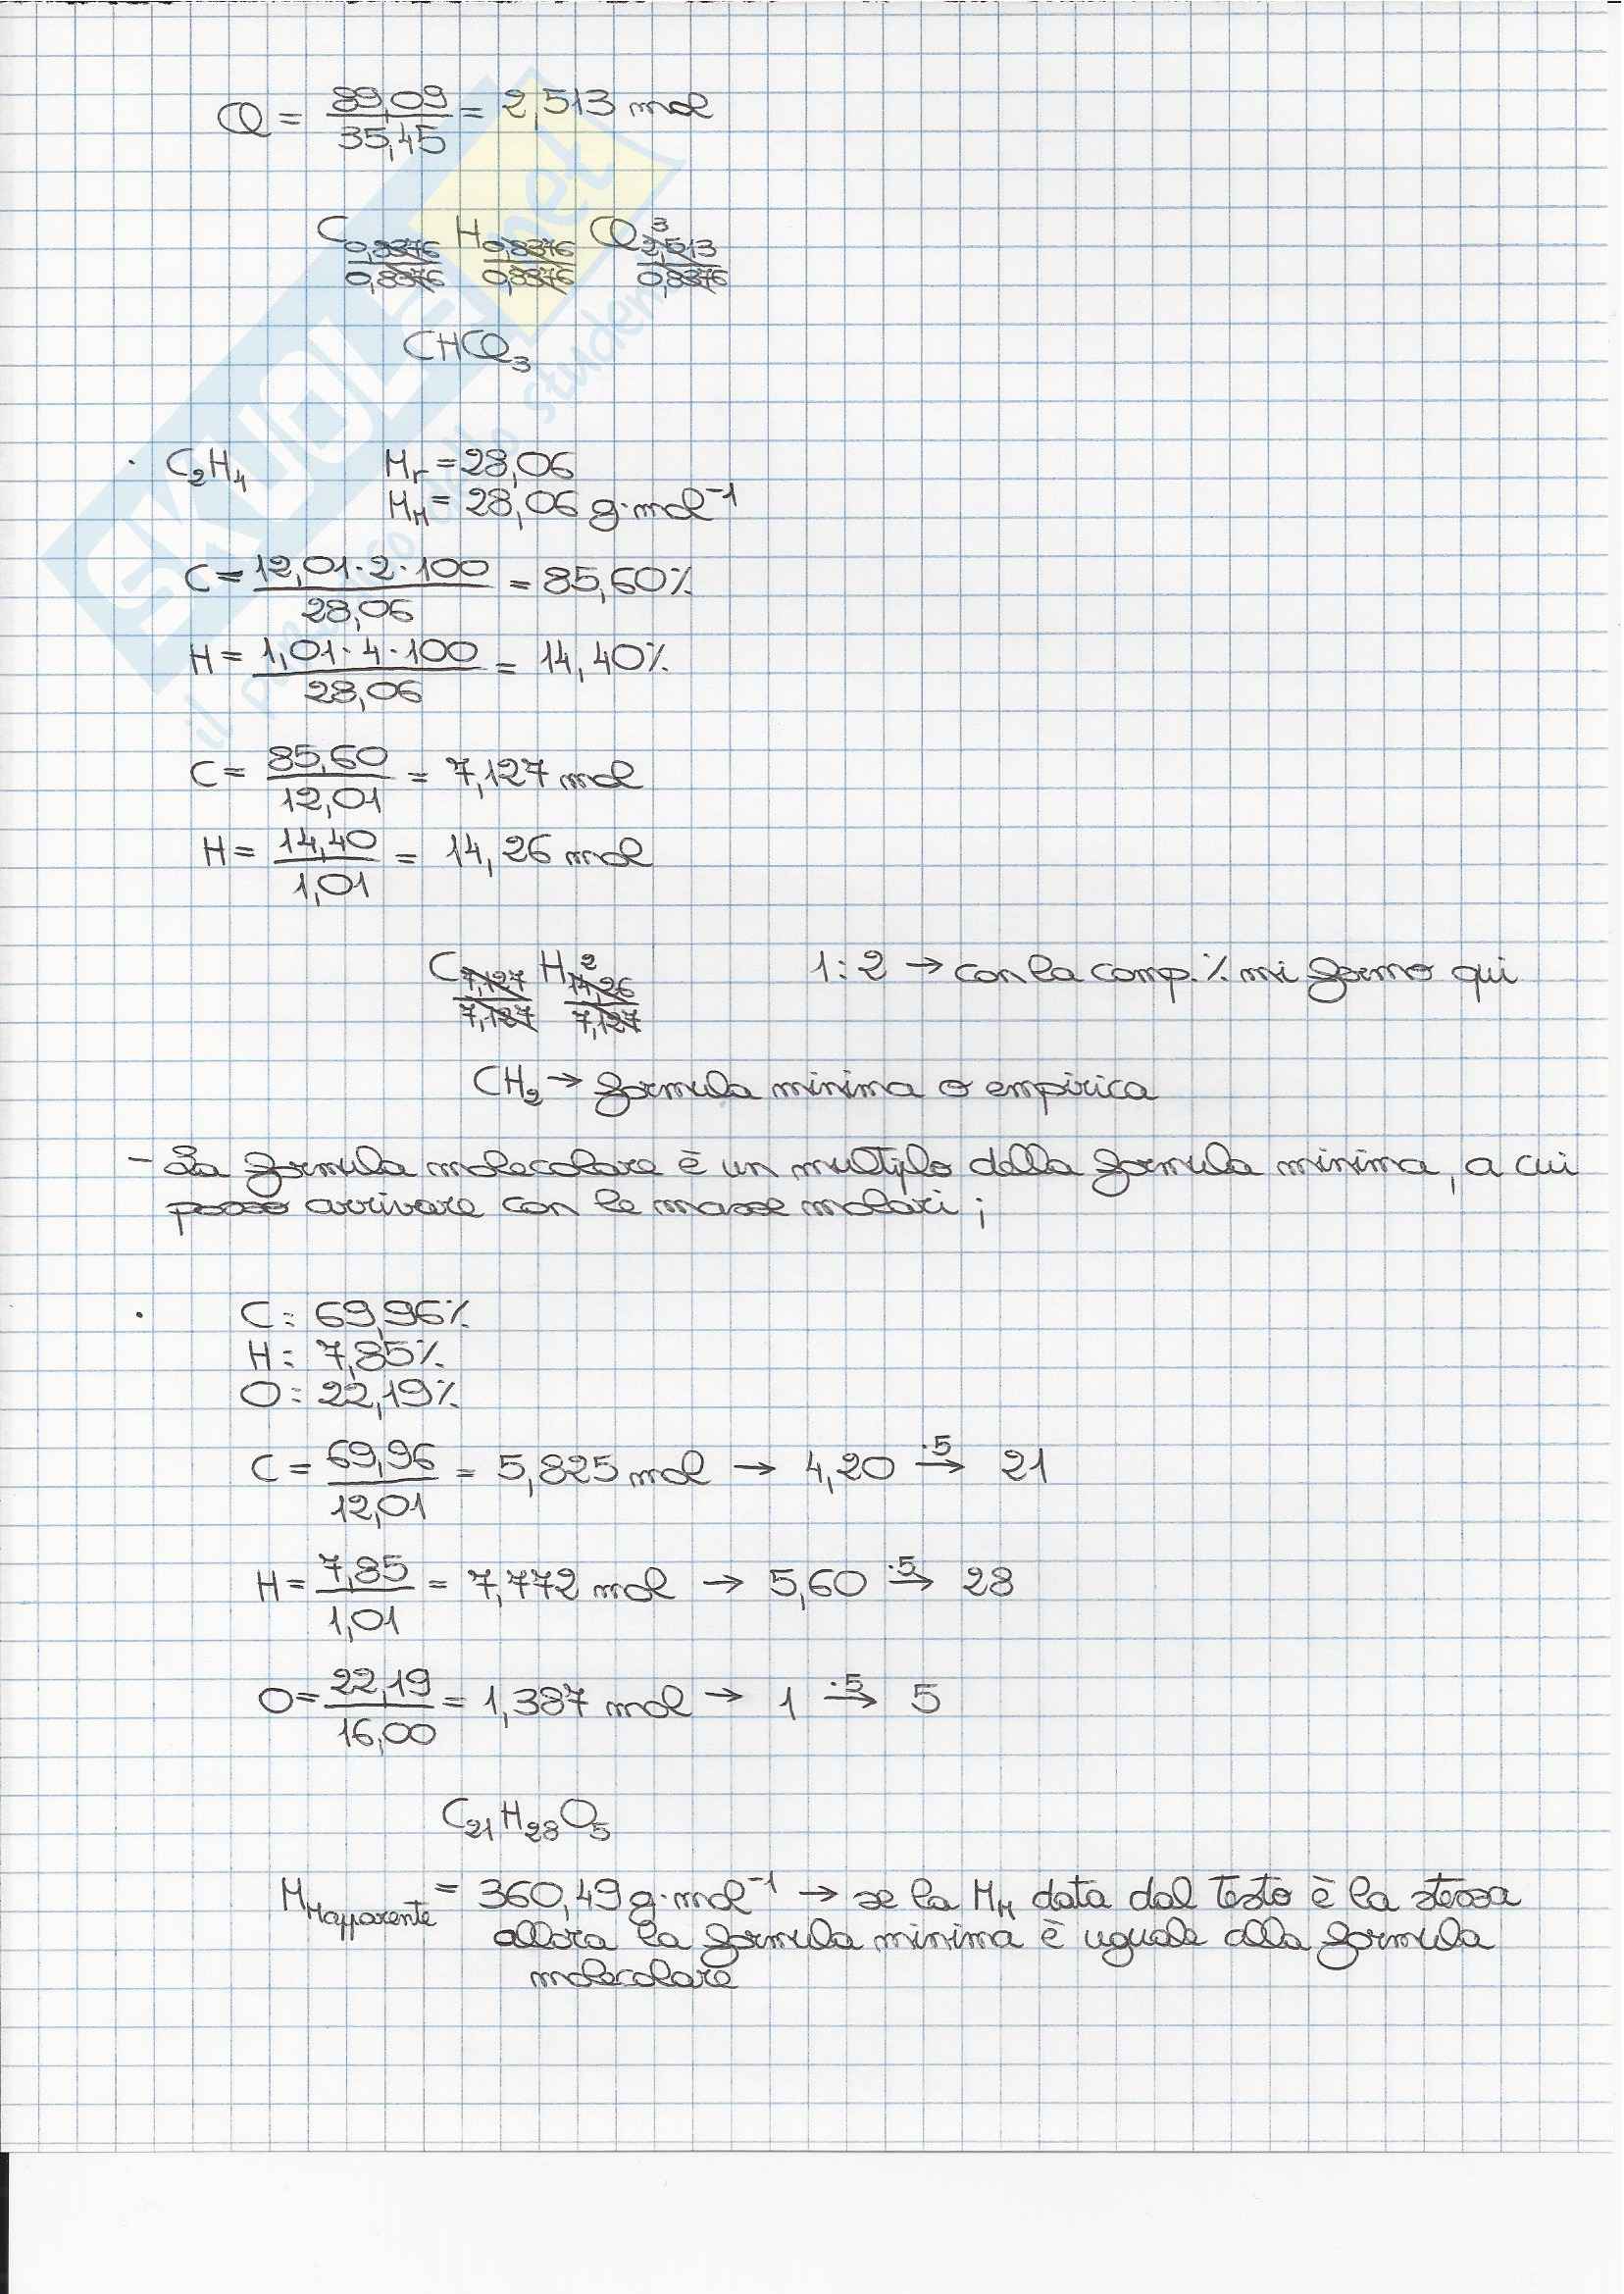 Cl = 89,09 / 35,45 = 2,513 mol
C 0,8376/0,8376 H 0,8376/0,8376 Cl 2,513/0,8376 3
CHCl₃
· C₂H₄ Mr = 28,06
M_M = 28,06 g·mol⁻¹
C = 12,01·2·100 / 28,06 = 85,60%
H = 1,01·4·100 / 28,06 = 14,40%
C = 85,60 / 12,01 = 7,127 mol
H = 14,40 / 1,01 = 14,26 mol
C 7,127/7,127 H 14,26/7,127 2 1:2 → con la comp.% mi fermo qui
CH₂ → formula minima o empirica
- La formula molecolare è un multiplo della formula minima, a cui
posso arrivare con le masse molari;
· C: 69,96%
H: 7,85%
O: 22,19%
C = 69,96 / 12,01 = 5,825 mol → 4,20 ·5→ 21
H = 7,85 / 1,01 = 7,772 mol → 5,60 ·5→ 28
O = 22,19 / 16,00 = 1,387 mol → 1 ·5→ 5
C₂₁H₂₈O₅
M_M apparente = 360,49 g·mol⁻¹ → se la M_M data dal testo è la stessa
allora la formula minima è uguale alla formula
molecolare
SKUOLA.net